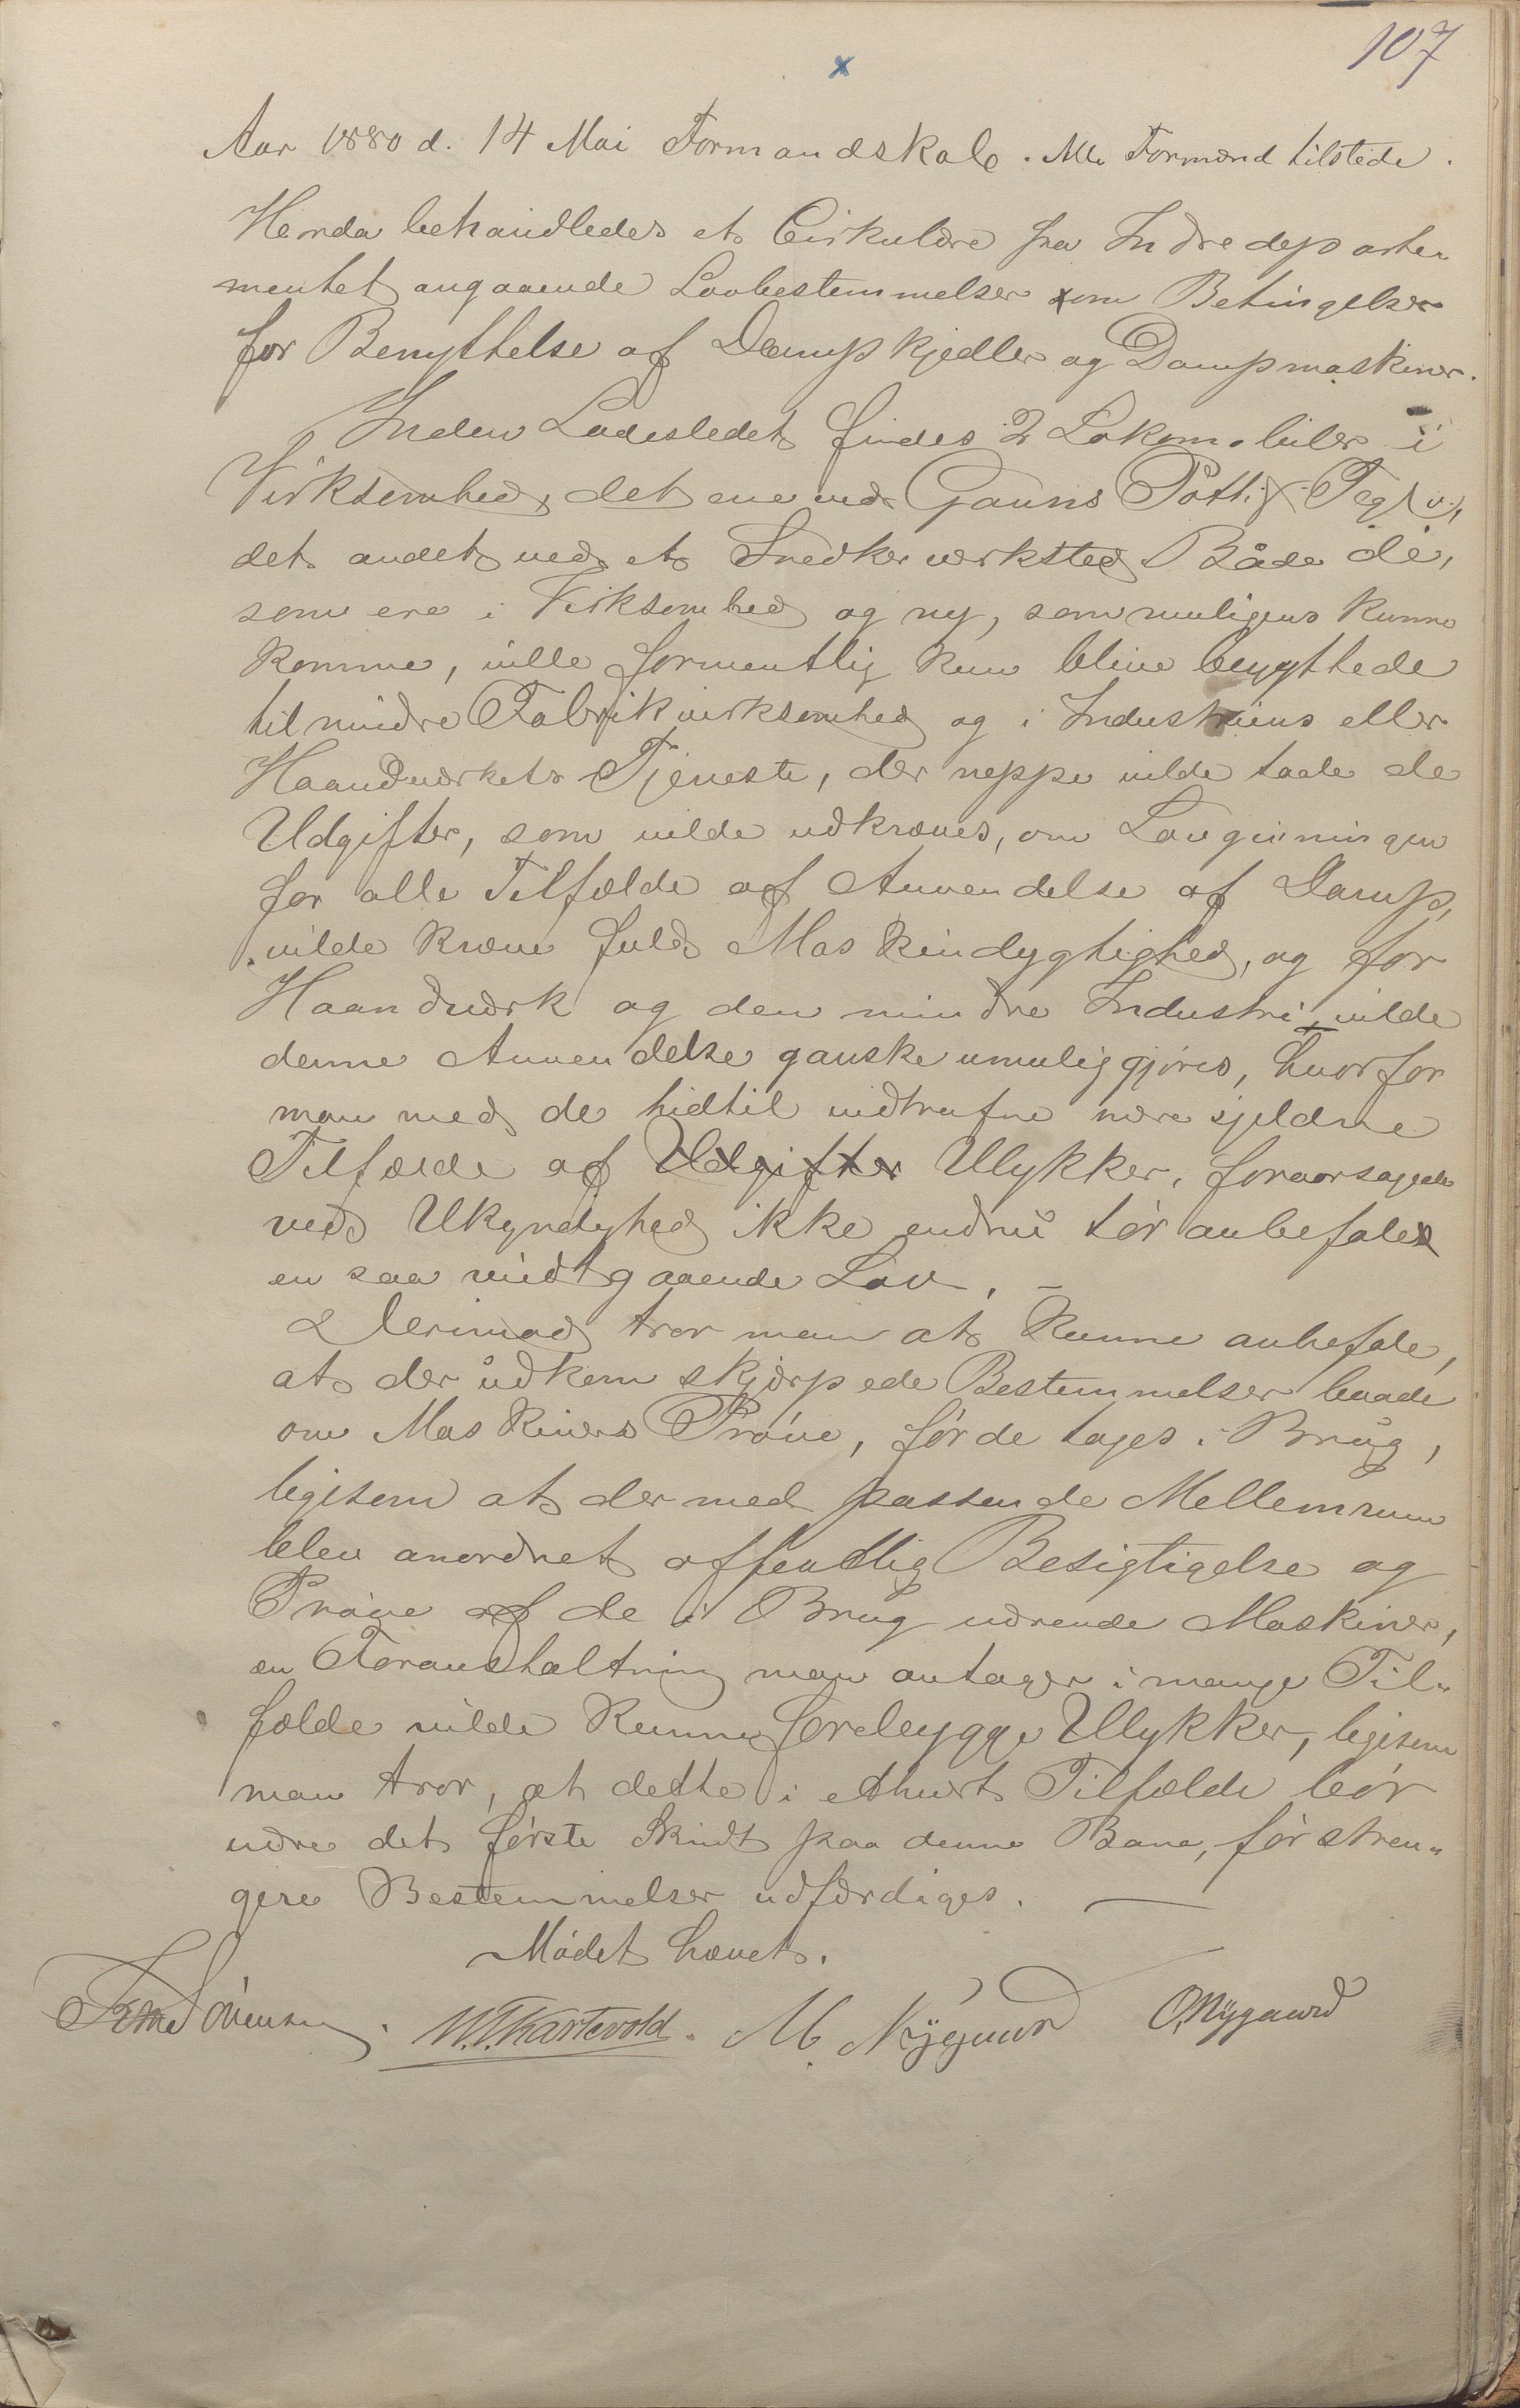 107
x
Aar 1880 d. 14 Mai Formandskab. Alle Formænd tilstede.
Herda behandledes et Cirkulære fra Indredeparte„
mentet angaaende Lovbestemmelser om Betingelser
for Benyttelse af Dampkjedler og Dampmaskiner.
Inden Ladestedet findes 2 Lokomobiler i
Virksomhed, det ene ved Ganns Potti & Teglv,
det andet ved et Snedkerværksted Både de,
som ere i Virksomhed og ny, som muligens kunne
komme, ville formentlig kun blive benyttede
til mindre Fabrikvirksomhed og i Industriens eller
Haandværkets Tjeneste, der neppe vilde taale de
Udgifter, som vilde udkræves, om Lovgivningen
for alle Tilfælde af Anvendelse af Damp,
vilde kræve fuld Maskindygtighed, og for
Haandværk og den mindre Industri vilde
denne Anvendelse ganske umuliggjøres, hvorfor
man med de hidtil indtrufne sjeldne
Tilfælde af Udgifter Ulykker, foraarsagede
ved Ukyndighed ikke endnu tør anbefale
en saa vidtgaaende Lov. –
Derimod tror man at kunne anbefale,
at der udkom skjærpede Bestemmelser baade
om Maskiners Prøve, før de tages i Brug,
ligesom at der med passende Mellemrum
blev anordnet offentlig Besigtigelse og
Prøve af de i Brug værende Maskiner,
en Foranstaltning man antager i mange Til„
fælde vilde kunne forebygge Ulykker, ligesom
man tror, at dette i ethvert Tilfælde bør
være det første Skridt paa denne Bane, før stren„
gere Bestemmelser udfærdiges. —
Mødet hævet.
Sørensen. W.T. Kartevold. M. Nygaard O. Nygaard